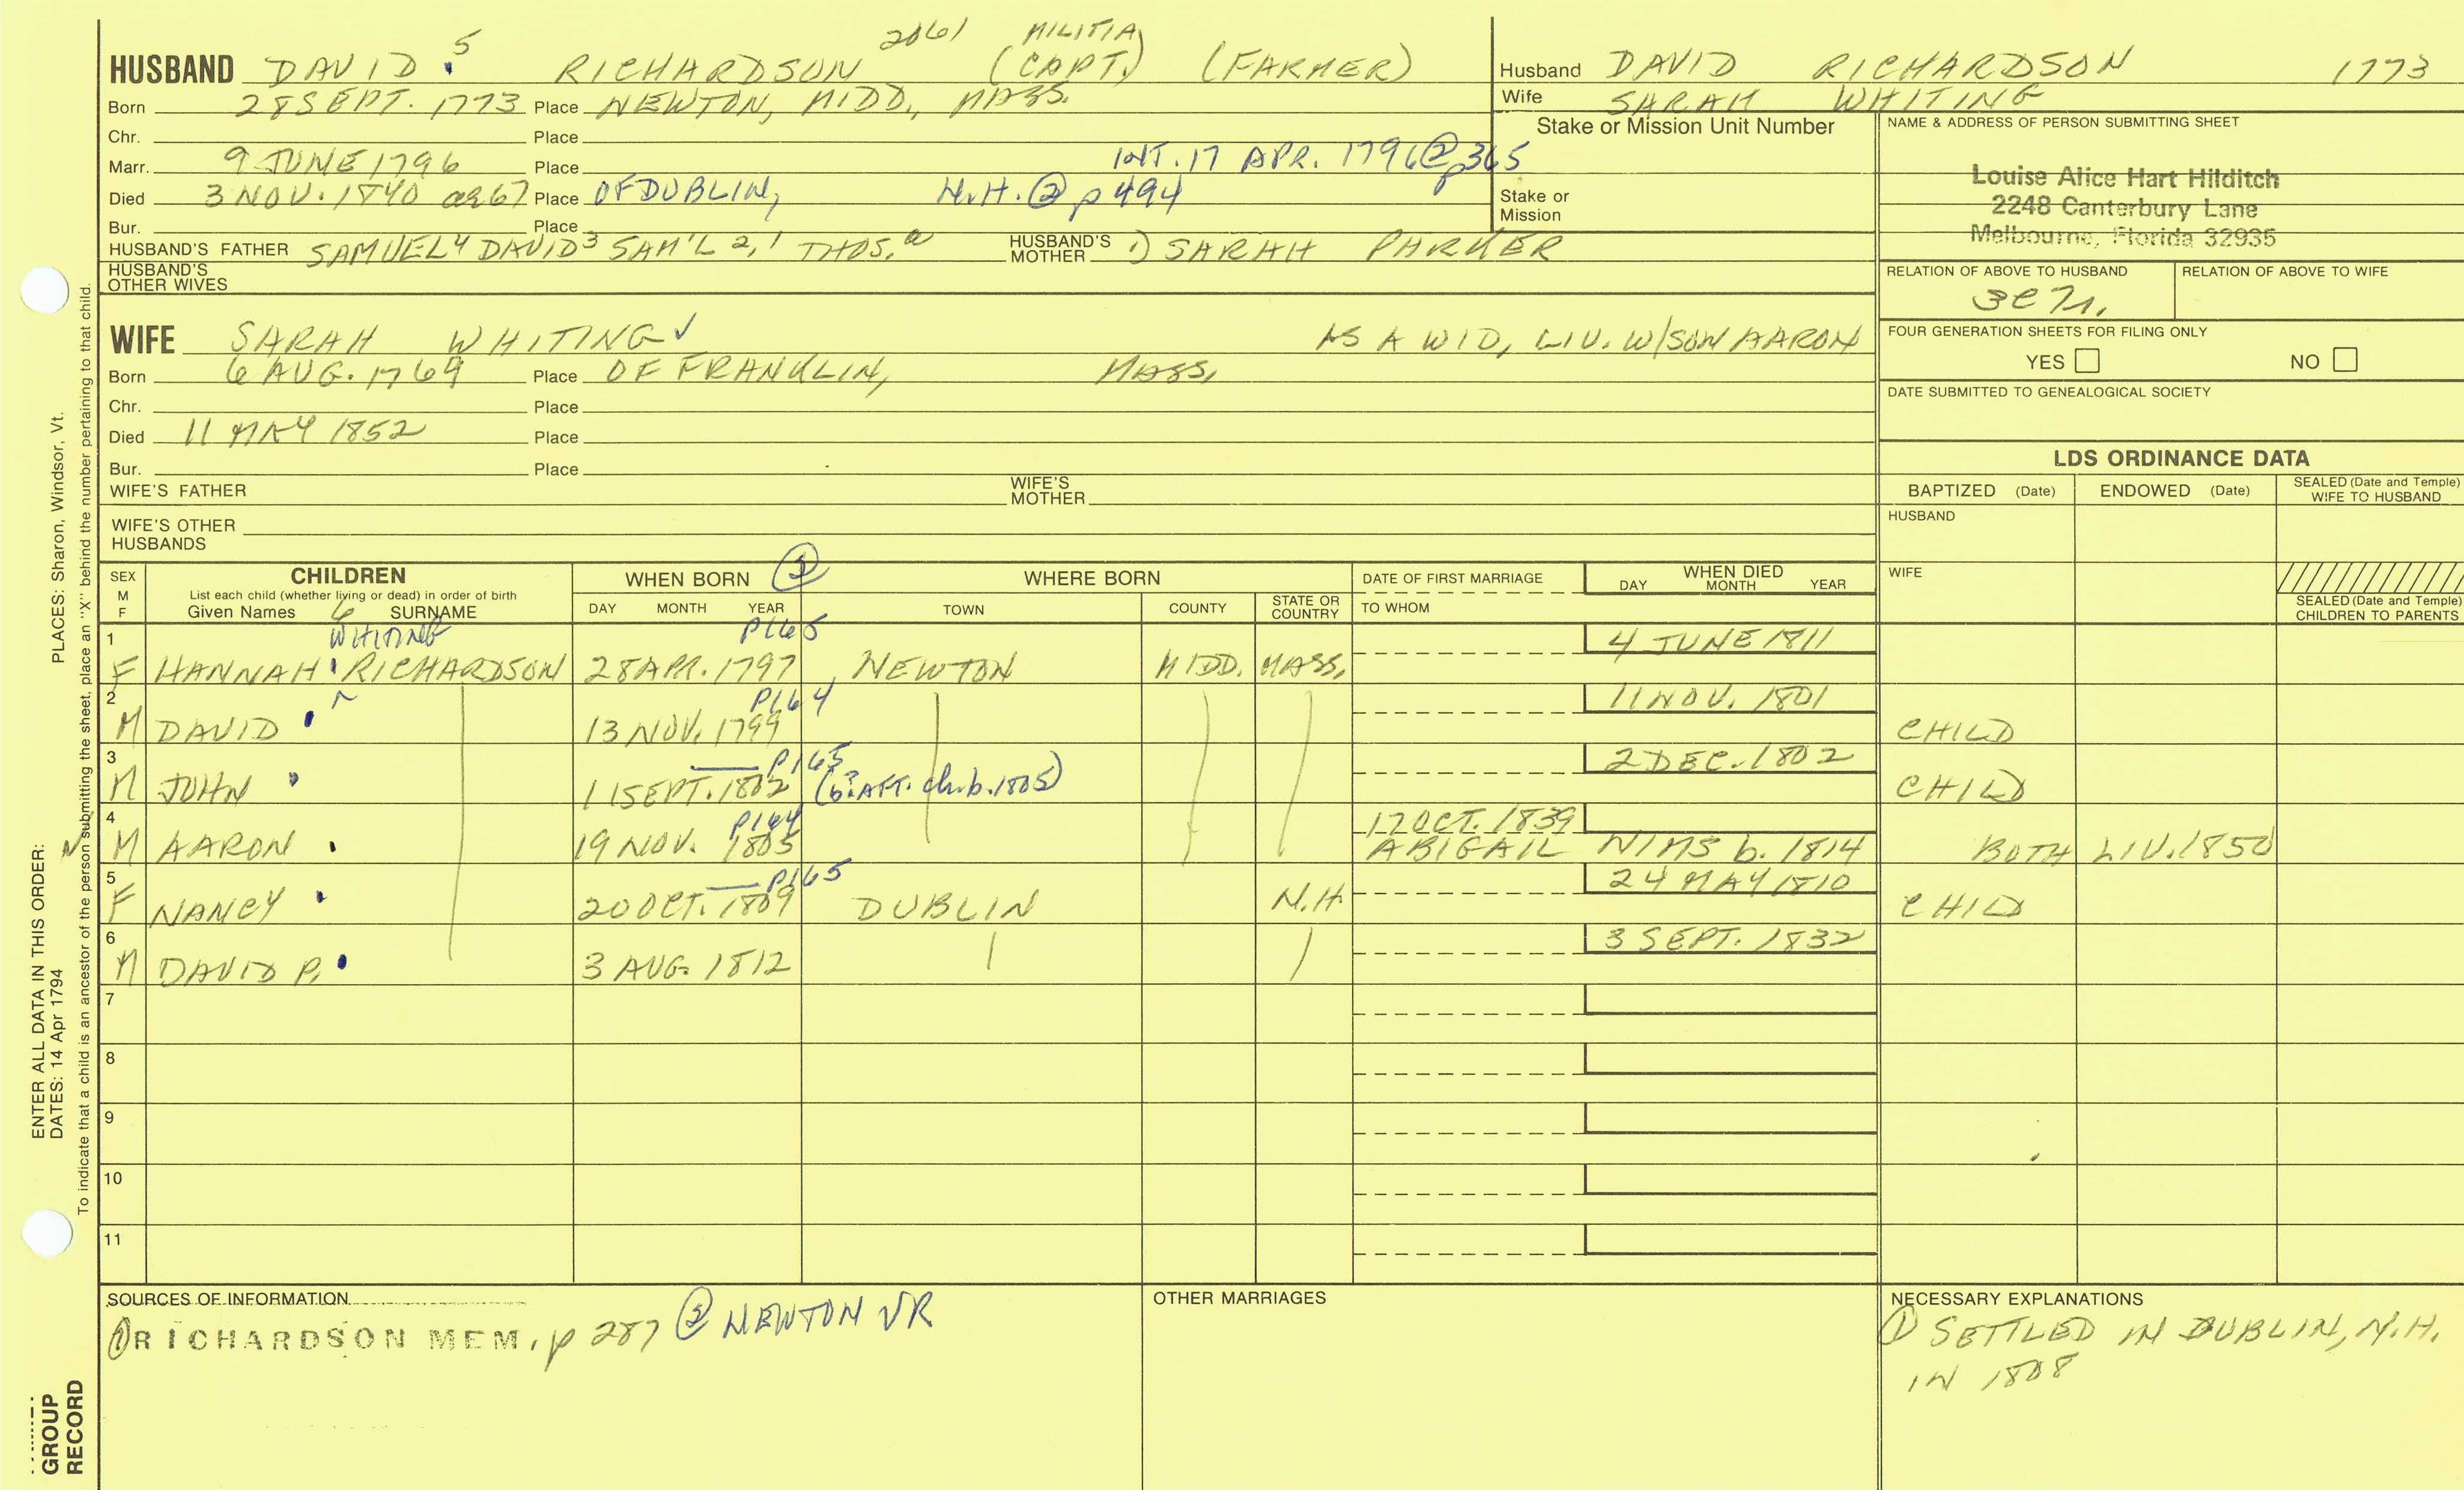 HUSBAND DAVID 5 RICHARDSON 2061 MILITIA (CAPT.) (FARMER)
Born 28 SEPT. 1773 Place NEWTON, MIDD., MASS.
Chr. Place
Marr. 9 JUNE 1796 Place INT. 17 APR. 1796 @ p365
Died 3 NOV. 1840 ae 67 Place OF DUBLIN, N.H. ② p 494
Bur. Place
HUSBAND'S FATHER SAMUEL 4 DAVID 3 SAM'L 2, 1 THOS. a HUSBAND'S MOTHER 1) SARAH PARKER
HUSBAND'S OTHER WIVES
Husband DAVID RICHARDSON 1773
Wife SARAH WHITING
Stake or Mission Unit Number
Stake or Mission
NAME & ADDRESS OF PERSON SUBMITTING SHEET
Louise Alice Hart Hilditch
2248 Canterbury Lane
Melbourne, Florida 32935
RELATION OF ABOVE TO HUSBAND RELATION OF ABOVE TO WIFE
FOUR GENERATION SHEETS FOR FILING ONLY
YES NO
DATE SUBMITTED TO GENEALOGICAL SOCIETY
WIFE SARAH WHITING ✓ AS A WID, LIV. W/SON AARON
Born 6 AUG. 1769 Place OF FRANKLIN, MASS.
Chr. Place
Died 11 MAY 1852 Place
Bur. Place
WIFE'S FATHER WIFE'S MOTHER
WIFE'S OTHER HUSBANDS
LDS ORDINANCE DATA
BAPTIZED (Date) ENDOWED (Date) SEALED (Date and Temple) WIFE TO HUSBAND
HUSBAND
WIFE
SEALED (Date and Temple) CHILDREN TO PARENTS
SEX M F
CHILDREN
List each child (whether living or dead) in order of birth
Given Names 6 SURNAME
WHEN BORN ②
DAY MONTH YEAR
WHERE BORN
TOWN COUNTY STATE OR COUNTRY
DATE OF FIRST MARRIAGE
TO WHOM
WHEN DIED
DAY MONTH YEAR
1 WHITING P165 4 JUNE 1811
F HANNAH RICHARDSON 28 APR. 1797 NEWTON MIDD. MASS.
2 P164 11 NOV. 1801
M DAVID 13 NOV. 1799 CHILD
3 P165 2 DEC. 1802
M JOHN 1 SEPT. 1802 (b. AFT. ch. b. 1805) CHILD
4 P164 17 OCT. 1839
M AARON 19 NOV. 1805 ABIGAIL NIMS b. 1814 BOTH LIV. 1850
5 P165 24 MAY 1810
F NANCY 20 OCT. 1809 DUBLIN N.H. CHILD
6 3 SEPT. 1832
M DAVID P. 3 AUG. 1812
7
8
9
10
11
SOURCES OF INFORMATION
① RICHARDSON MEM, p 287 ② NEWTON VR
OTHER MARRIAGES
NECESSARY EXPLANATIONS
① SETTLED IN DUBLIN, N.H.
IN 1808
ENTER ALL DATA IN THIS ORDER:
DATES: 14 Apr 1794 PLACES: Sharon, Windsor, Vt.
To indicate that a child is an ancestor of the person submitting the sheet, place an "X" behind the number pertaining to that child.
GROUP
RECORD